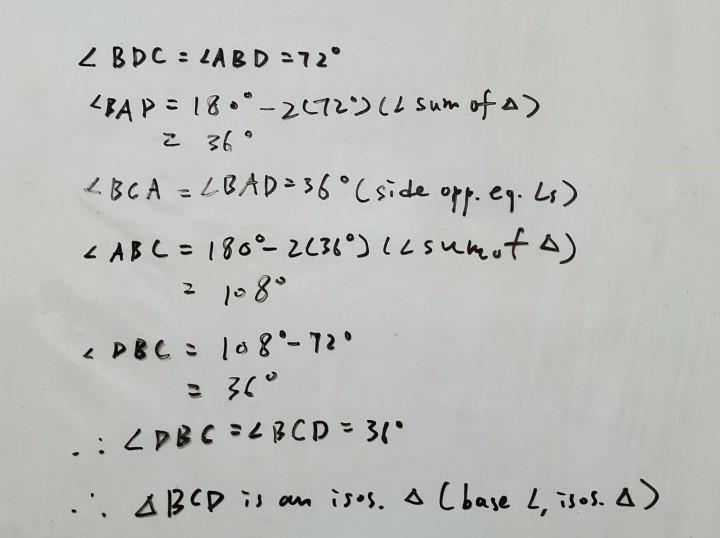 ∠BDC = ∠ABD = 72°
∠BAD = 180° - 2(72°) (∠ sum of △)
= 36°
∠BCA = ∠BAD = 36° (side opp. eq. ∠s)
∠ABC = 180° - 2(36°) (∠ sum of △)
= 108°
∠DBC = 108° - 72°
= 36°
∴ ∠DBC = ∠BCD = 36°
∴ △BCD is an isos. △ (base ∠, isos. △)